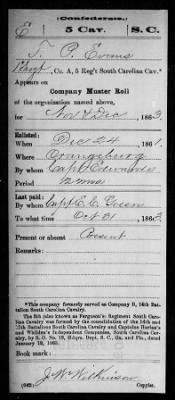 (Confederate.)
E 5 Cav. S.C.
T. P. Evans
Pvt, Co. A, 5 Reg't South Carolina Cav.*
Appears on
Company Muster Roll
of the organization named above,
for Nov & Dec, 1863.
Enlisted:
When Dec 24, 1861.
Where Orangeburg
By whom Capt Edwards
Period 12 mos
Last paid:
By whom Capt E. C. Green
To what time Oct 31, 1863.
Present or absent Present
Remarks:
*This company formerly served as Company B, 14th Battalion South Carolina Cavalry.
The 5th (also known as Ferguson's) Regiment South Carolina Cavalry was formed by the consolidation of the 14th and 17th Battalions South Carolina Cavalry and Captains Harlan's and Whilden's Independent Companies, South Carolina Cavalry, by S. O. No. 18, Hdqrs. Dept. S. C., Ga. and Fla., dated January 18, 1863.
Book mark:
J. W. Wilkinson
(642) Copyist.